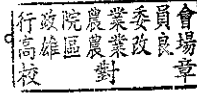 行政院農業委員會
高雄區農業改良場
校對章